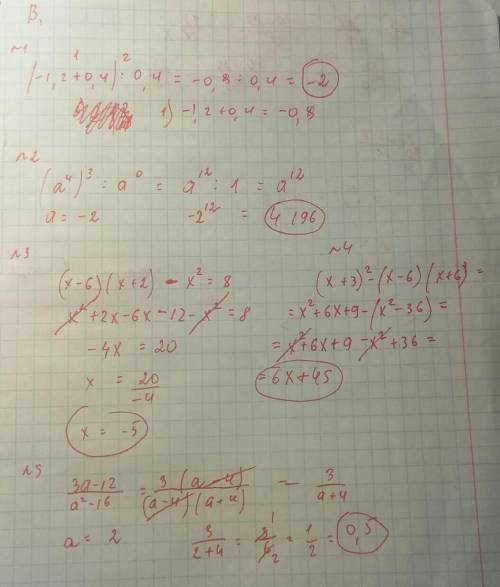 В₁
№1
(-1,2+0,4):0,4 = -0,8:0,4 = -2
1) -1,2+0,4 = -0,8
№2
(a⁴)³ : a⁰ = a¹² : 1 = a¹²
a = -2 -2¹² = 4 196
№3
(x-6)(x+2) - x² = 8
x²+2x-6x-12-x² = 8
-4x = 20
x = 20/-4
x = -5
№4
(x+3)²-(x-6)(x+6) =
= x²+6x+9-(x²-36) =
= x²+6x+9-x²+36 =
= 6x+45
№5
3a-12/a²-16 = 3(a-4)/(a-4)(a+4) = 3/a+4
a = 2 3/2+4 = 3/6 = 1/2 = 0,5